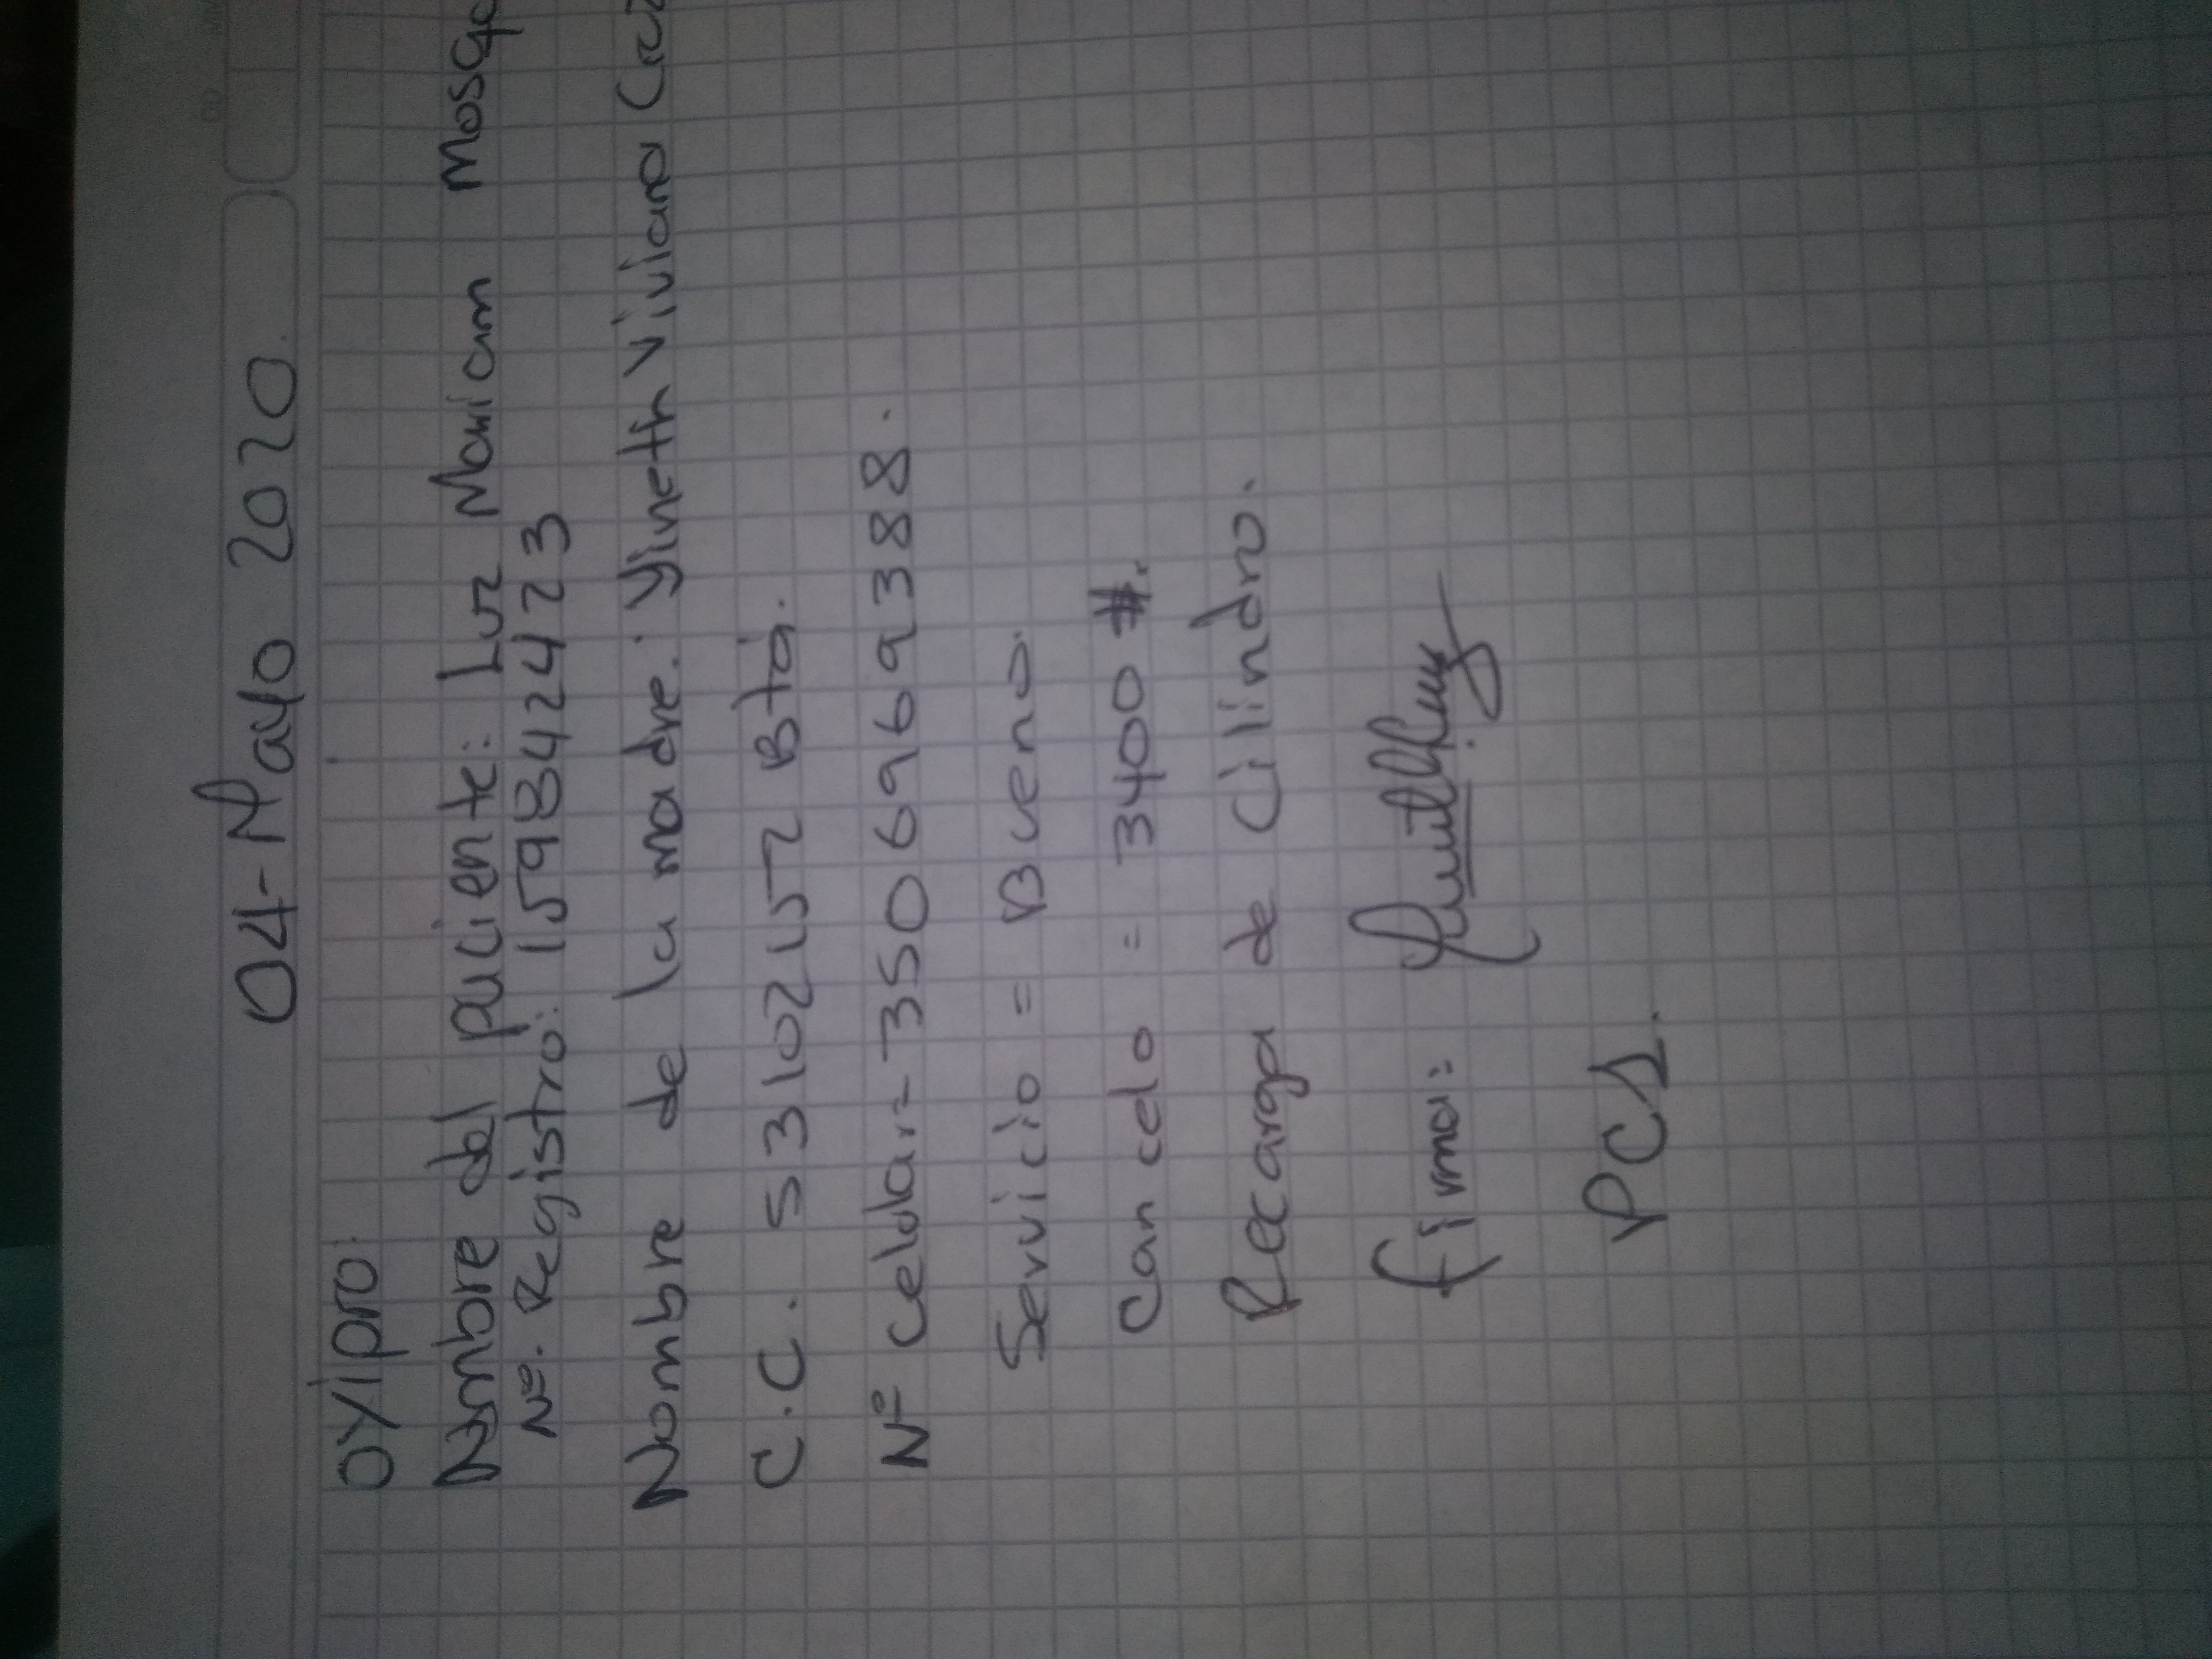 04-Mayo 2020.
oxipro:
Nombre del paciente: Luz Mariam
Nº. Registro: 1598424273
Nombre de la madre: Yineth Viviana
C.C. 53102152 Btá.
Nº celular= 3506969388.
Servicio = Bueno.
Cancelo = 3400 #.
Recarga de Cilindro.
firma:
PCS.